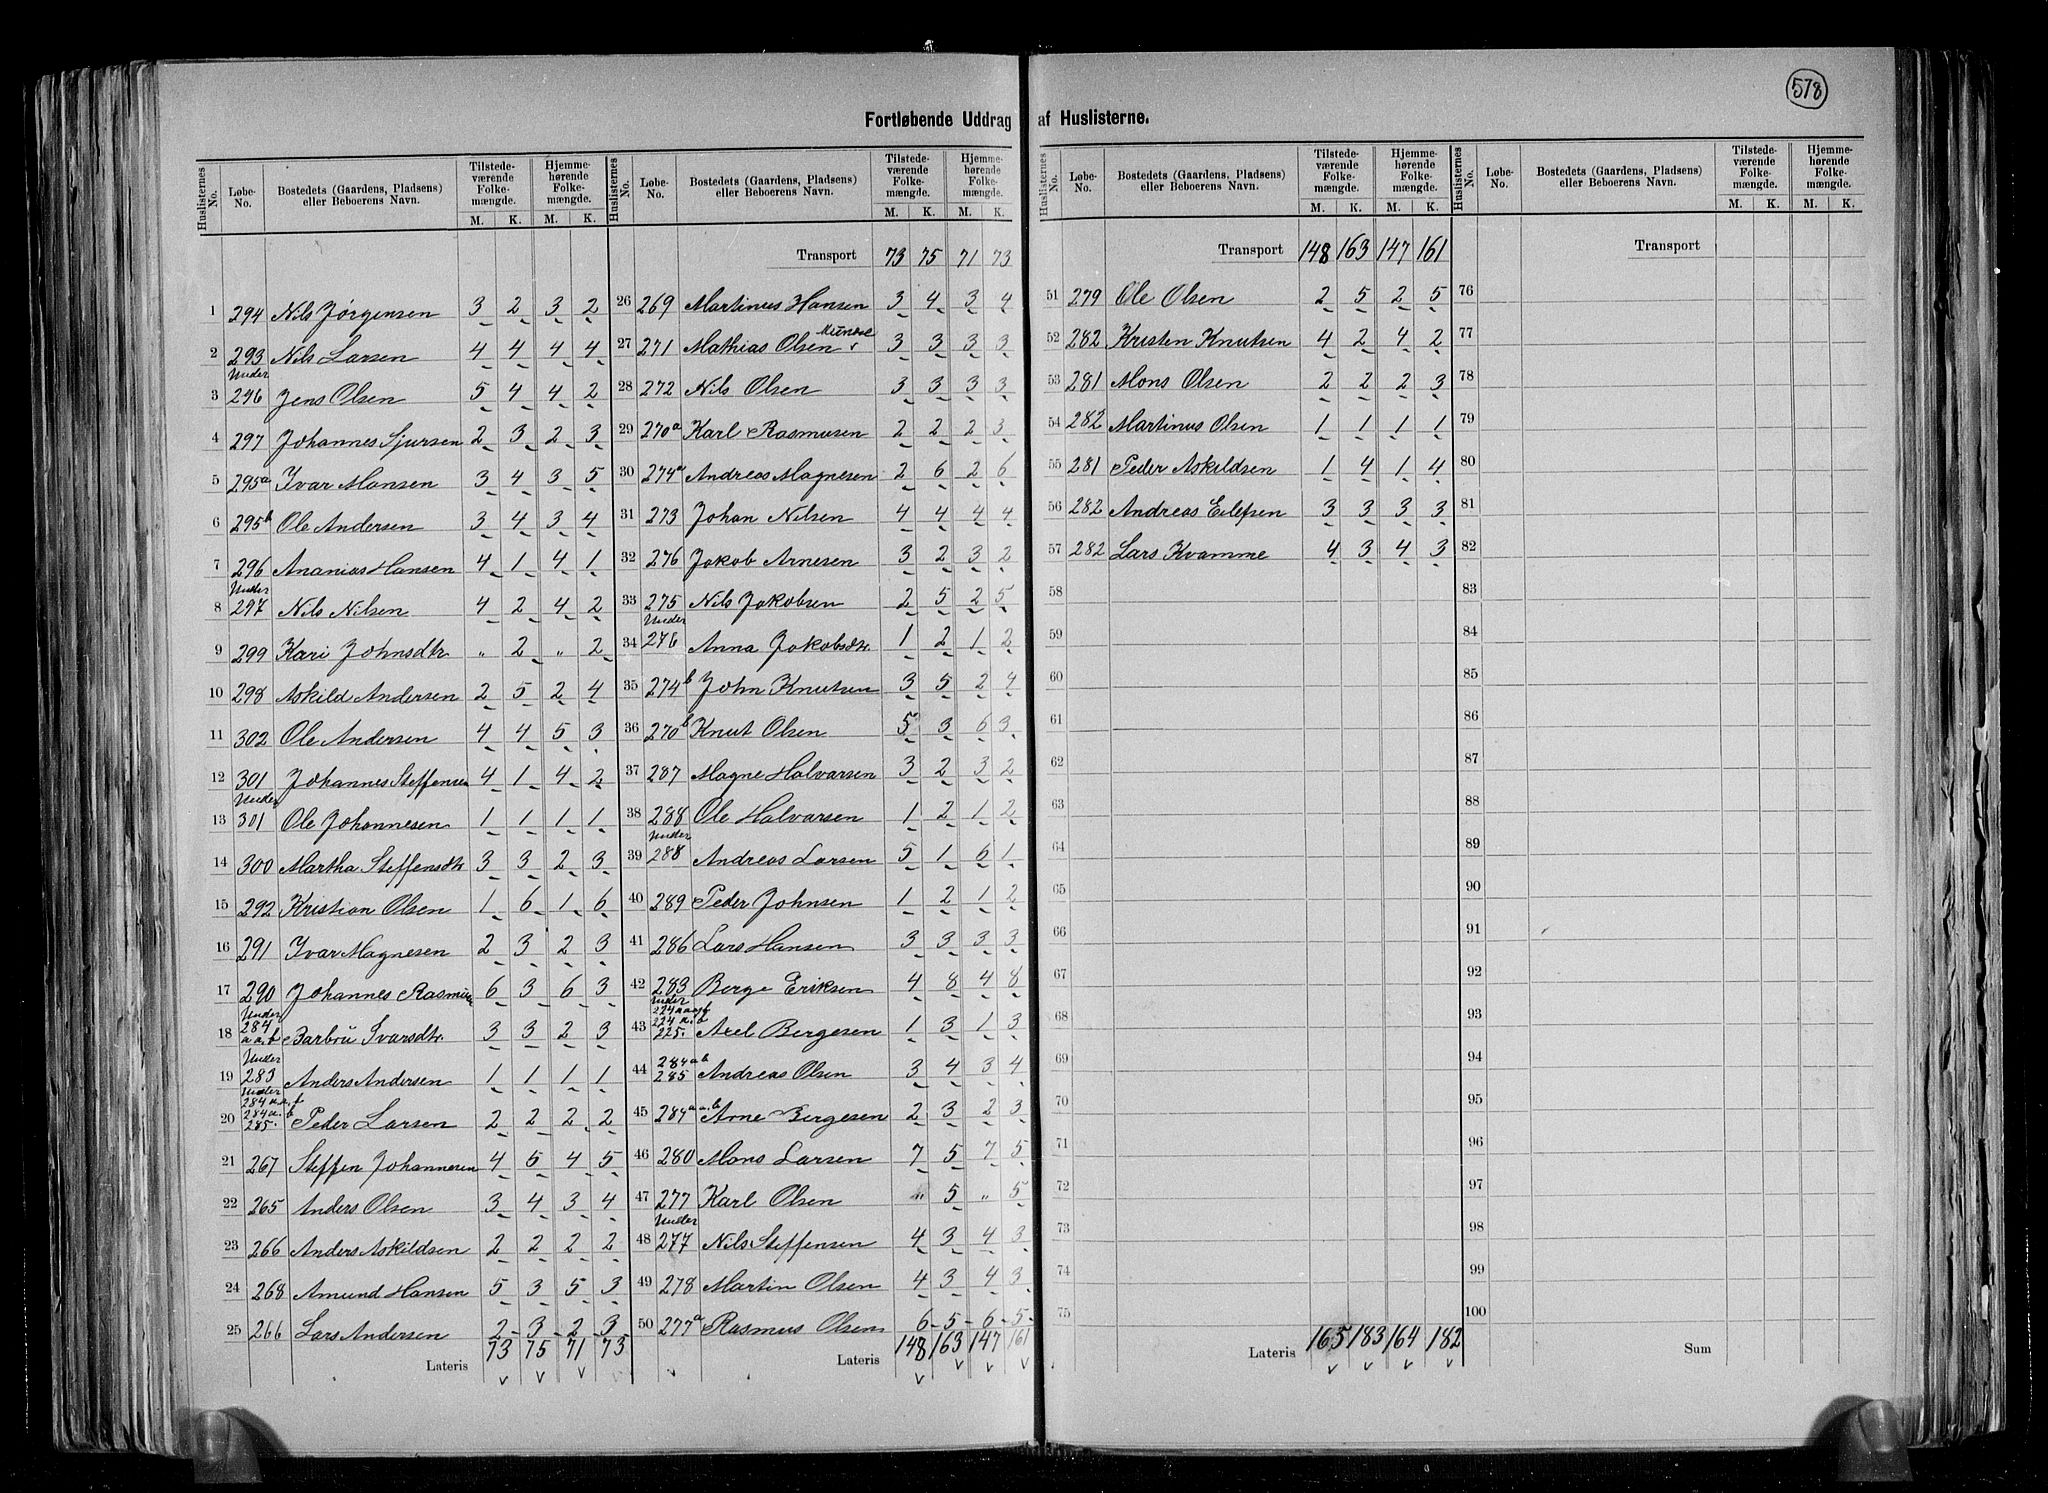 578
Fortløbende Uddrag af Huslisterne.
Huslisternes No. Løbe-No. Bostedets (Gaardens, Pladsens) eller Beboerens Navn. Tilstedeværende Folkemængde. M. K. Hjemmehørende Folkemængde. M. K.
1 294 Nils Jörgensen 3 2 3 2
2 293 Nils Larsen 4 4 4 4
3 Under 296 Jens Olsen 5 4 4 2
4 297 Johannes Sjursen 2 3 2 3
5 295a Ivar Monsen 3 4 3 5
6 295b Ole Andersen 3 4 3 4
7 296 Ananias Hansen 4 1 4 1
8 Under 297 Nils Nilsen 4 2 4 2
9 299 Kari Johnsdtr. " 2 " 2
10 298 Askild Andersen 2 5 2 4
11 302 Ole Andersen 4 4 5 3
12 301 Johannes Steffensen 4 1 4 2
13 Under 301 Ole Johannesen 1 1 1 1
14 300 Martha Steffensdtr 3 3 2 3
15 292 Kristian Olsen 1 6 1 6
16 291 Ivar Magnesen 2 3 2 3
17 290 Johannes Rasmusen 6 3 6 3
18 Under 284 a a, b Barbrü Ivarsdtr. 3 3 2 3
19 Under 283 Anders Andersen 1 1 1 1
20 Under 284 a. a. b 284 a. b 285. Peder Larsen 2 2 2 2
21 267 Steffen Johannesen 4 5 4 5
22 265 Anders Olsen 3 4 3 4
23 266 Anders Askildsen 2 2 2 2
24 268 Amund Hansen 5 3 5 3
25 266 Lars Andersen 2 3 2 3
Lateris 73 75 71 73
Huslisternes No. Løbe-No. Bostedets (Gaardens, Pladsens) eller Beboerens Navn. Tilstedeværende Folkemængde. M. K. Hjemmehørende Folkemængde. M. K.
Transport 73 75 71 73
26 269 Martinus Hansen 3 4 3 4
27 271 Mathias Olsen 3 3 3 3
28 272 Nils Olsen 3 3 3 3
29 270a Karl Rasmusen 2 2 2 3
30 274a Andreas Magnesen 2 6 2 6
31 273 Johan Nilsen 4 4 4 4
32 276 Jakob Arnesen 3 2 3 2
33 275 Nils Jakobsen 2 5 2 5
34 Under 276 Anna Jakobsdtr. 1 2 1 2
35 274b John Knutsen 3 5 2 4
36 270b Knut Olsen 5 3 6 3
37 287 Magne Halvarsen 3 2 3 2
38 288 Ole Halvarsen 1 2 1 2
39 Under 288 Andreas Larsen 5 1 6 1
40 289 Peder Johnsen 1 2 1 2
41 286 Lars Hansen 3 3 3 3
42 283 Berge Eriksen 4 8 4 8
43 Under 224 a a. b 224 a. b 225. Axel Bergesen 1 3 1 3
44 284 a b 285 Andreas Olsen 3 4 3 4
45 284 a a. b Arne Bergesen 2 3 2 3
46 280 Mons Larsen 7 5 7 5
47 277 Karl Olsen " 5 " 5
48 Under 277 Nils Steffensen 4 3 4 3
49 278 Martin Olsen 4 3 4 3
50 277a Rasmus Olsen 6 5 6 5
Lateris 148 163 147 161
Huslisternes No. Løbe-No. Bostedets (Gaardens, Pladsens) eller Beboerens Navn. Tilstedeværende Folkemængde. M. K. Hjemmehørende Folkemængde. M. K.
Transport 148 163 147 161
51 279 Ole Olsen 2 5 2 5
52 282 Kristen Knutsen 4 2 4 2
53 281 Mons Olsen 2 2 2 3
54 282 Martinus Olsen 1 1 1 1
55 281 Peder Askildsen 1 4 1 4
56 282 Andreas Eilefsen 3 3 3 3
57 282 Lars Kvamme 4 3 4 3
58
59
60
61
62
63
64
65
66
67
68
69
70
71
72
73
74
75
Lateris 165 183 164 182
Huslisternes No. Løbe-No. Bostedets (Gaardens, Pladsens) eller Beboerens Navn. Tilstedeværende Folkemængde. M. K. Hjemmehørende Folkemængde. M. K.
Transport
76
77
78
79
80
81
82
83
84
85
86
87
88
89
90
91
92
93
94
95
96
97
98
99
100
Sum